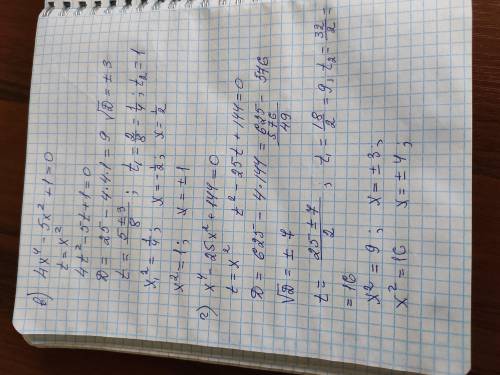 в) 4x⁴ - 5x² + 1 = 0
t = x²
4t² - 5t + 1 = 0
D = 25 - 4·4·1 = 9 √D = ±3
t = (5 ± 3)/8 ; t₁ = 2/8 = 1/4 ; t₂ = 1
x₁² = 1/4 ; x = -1/2 , x = 1/2
x² = 1 ; x = ±1
г) x⁴ - 25x² + 144 = 0
t = x² t² - 25t + 144 = 0
D = 625 - 4·144 = 625 - 576
576
49
√D = ±7
t = (25 ± 7)/2 ; t₁ = 18/2 = 9 ; t₂ = 32/2 =
= 16
x² = 9 ; x = ±3 ;
x² = 16 x = ±4 ;